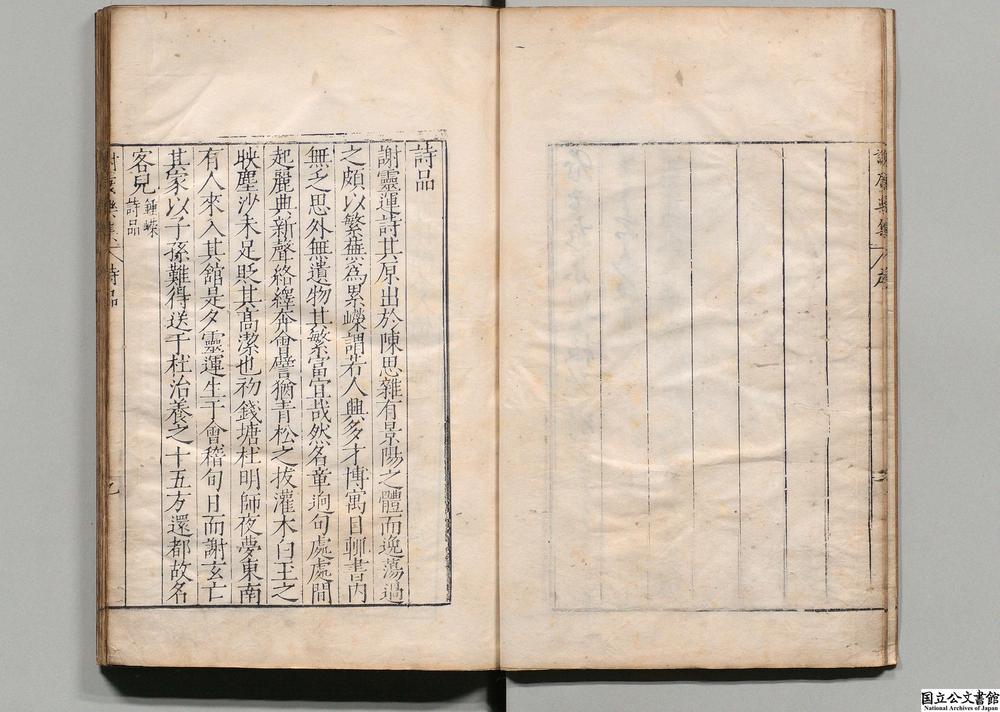 詩品
謝靈運詩其原出於陳思雜有景陽之體而逸蕩過
之頗以繁蕪為累嶸謂若人興多才博寓目輒書內
無乏思外無遺物其繁富宜哉然名章逈句處處間
起麗典新聲絡繹奔會譬猶青松之拔灌木白玉之
映塵沙未足貶其髙潔也初錢塘杜明師夜夢東南
有人來入其館是夕靈運生于會稽旬日而謝玄亡
其家以子孫難得送于杜治養之十五方還都故名
客兒
鍾嶸
詩品
詩品
九
国立公文書館
National Archives of Japan